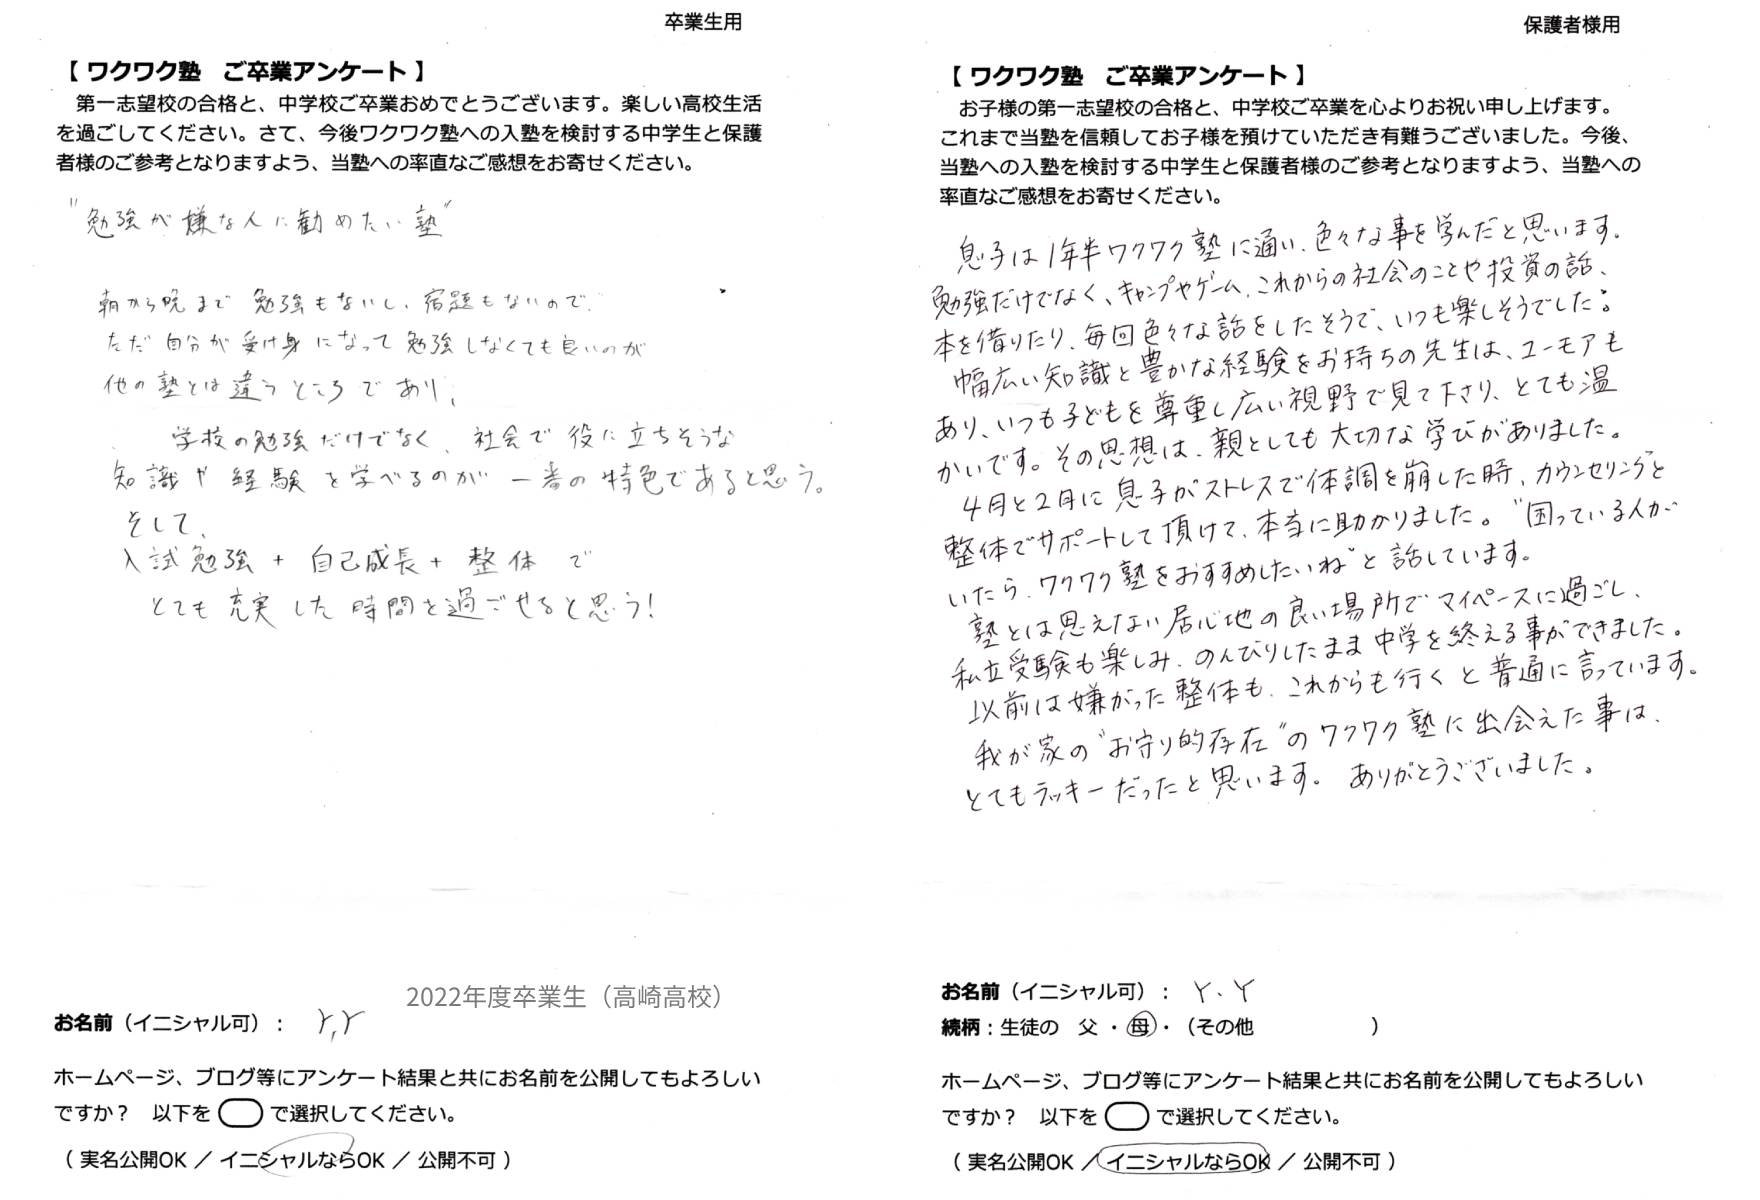 卒業生用
【 ワクワク塾　ご卒業アンケート 】
第一志望校の合格と、中学校ご卒業おめでとうございます。楽しい高校生活
を過ごしてください。さて、今後ワクワク塾への入塾を検討する中学生と保護
者様のご参考となりますよう、当塾への率直なご感想をお寄せください。
"勉強が嫌な人に勧めたい塾"
朝から晩まで勉強もないし、宿題もないので、
ただ自分が受け身になって勉強しなくても良いのが
他の塾とは違うところであり、
学校の勉強だけでなく、社会で役に立ちそうな
知識や経験を学べるのが一番の特色であると思う。
そして、
入試勉強 + 自己成長 + 整体 で
とても充実した時間を過ごせると思う!
2022年度卒業生（高崎高校）
お名前（イニシャル可）： Y,Y
ホームページ、ブログ等にアンケート結果と共にお名前を公開してもよろしい
ですか？　以下を　で選択してください。
（ 実名公開OK ／ イニシャルならOK ／ 公開不可 ）
保護者様用
【 ワクワク塾　ご卒業アンケート 】
お子様の第一志望校の合格と、中学校ご卒業を心よりお祝い申し上げます。
これまで当塾を信頼してお子様を預けていただき有難うございました。今後、
当塾への入塾を検討する中学生と保護者様のご参考となりますよう、当塾への
率直なご感想をお寄せください。
息子は1年半ワクワク塾に通い、色々な事を学んだと思います。
勉強だけでなく、キャンプやゲーム、これからの社会のことや投資の話、
本を借りたり、毎回色々な話をしたそうで、いつも楽しそうでした。
幅広い知識と豊かな経験をお持ちの先生は、ユーモアも
あり、いつも子どもを尊重し広い視野で見て下さり、とても温
かいです。その思想は、親としても大切な学びがありました。
4月と2月に息子がストレスで体調を崩した時、カウンセリングと
整体でサポートして頂けて、本当に助かりました。"困っている人が
いたら、ワクワク塾をおすすめしたいね"と話しています。
塾とは思えない居心地の良い場所でマイペースに過ごし、
私立受験も楽しみ、のんびりしたまま中学を終える事ができました。
以前は嫌がった整体も、これからも行くと普通に言っています。
我が家の"お守り的存在"のワクワク塾に出会えた事は、
とてもラッキーだったと思います。 ありがとうございました。
お名前（イニシャル可）： Y.Y
続柄：生徒の　父 ・ 母 ・（その他　　　　　）
ホームページ、ブログ等にアンケート結果と共にお名前を公開してもよろしい
ですか？　以下を　で選択してください。
（ 実名公開OK ／ イニシャルならOK ／ 公開不可 ）